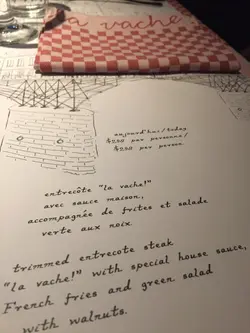 la vache!
aujourd'hui/today
$290 par personne/
$290 per person
entrecôte "la vache!"
avec sauce maison,
accompagnée de frites et salade
verte aux noix.
trimmed entrecote steak
"la vache!" with special house sauce,
French fries and green salad
with walnuts.